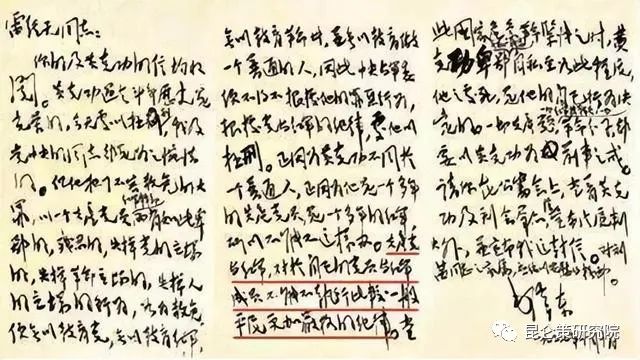 雷经天同志:
你的及黄克功的信均收
阅。黄克功过去斗争历史是
光荣的,今天处以极刑,我及
党中央的同志都是为之惋惜
的。但他犯了不容赦免的大
罪,以一个共产党员红军干部而有如此卑
鄙的,残忍的,失掉党的立场
的,失掉革命立场的,失掉人
的立场的行为,如为赦免,
便无以教育党,无以教育红军,
无以教育革命者,并无以教育做
一个普通的人,因此中央与军委
便不得不根据他的罪恶行为,
根据党与红军的纪律,处他以
极刑。正因为黄克功不同于
一个普通人,正因为他是一个多年
的共产党员,是一个多年的红军,
所以不能不这样办。共产党
与红军,对于自己的党员与红军
成员不能不执行比较一般
平民更加严格的纪律。当
此国家危急革命紧张之时,黄
克功卑鄙无耻残忍自私至如此程度,
他之处死,是他的自己行为决
定的。一切共产党员,一切红军指战员,一切革命分子,都
要以黄克功为前车之戒。
请你在公审会上,当着黄克
功及到会群众,除宣布法庭判
决外,并宣布我这封信。对刘
茜同志之家属,应给以安慰与抚恤。
毛泽东
昆仑策研究院